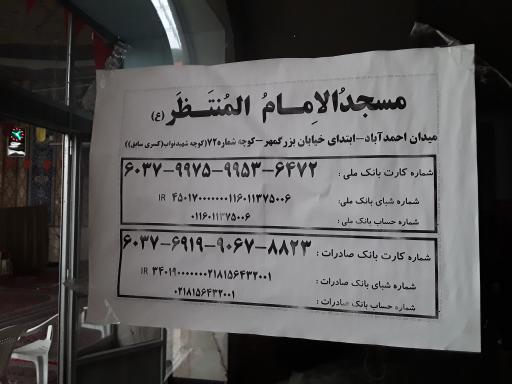 مسجدُالاِمـامُ المُنتَـظَر (ع)
میدان احمدآباد-ابتدای خیابان بزرگمهر-کوچه شماره۷۲(کوچه شهیدنواب(کسری سابق))
شماره کارت بانک ملی : ۶۰۳۷-۹۹۷۵-۹۹۵۳-۶۴۷۲
شماره شبای بانک ملی: IR ۴۵۰۱۷۰۰۰۰۰۰۰۱۱۶۰۱۱۳۷۵۰۰۶
شماره حساب بانک ملی : ۰۱۱۶۰۱۱۳۷۵۰۰۶
شماره کارت بانک صادرات : ۶۰۳۷-۶۹۱۹-۹۰۶۷-۸۸۲۳
شماره شبای بانک صادرات : IR ۳۴۰۱۹۰۰۰۰۰۰۰۰۲۱۸۱۵۶۴۳۲۰۰۱
شماره حساب بانک صادرات : ۰۲۱۸۱۵۶۴۳۲۰۰۱